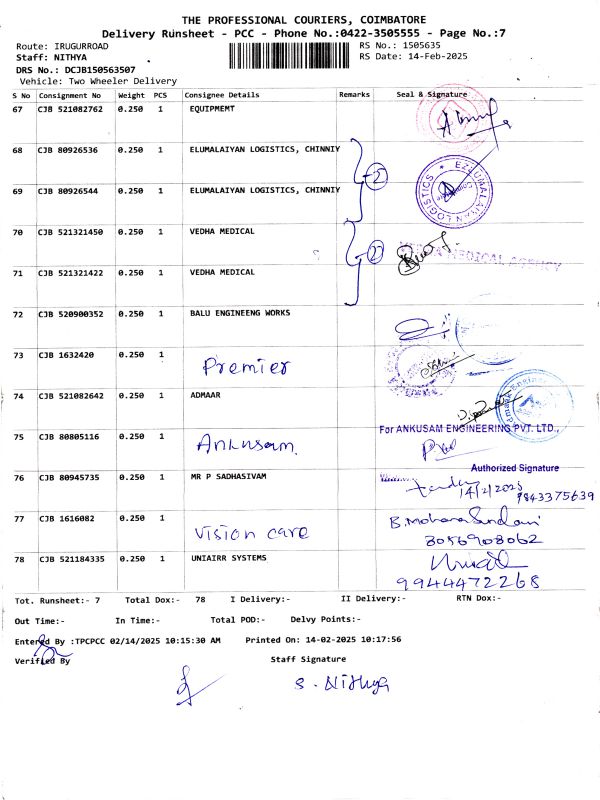 THE PROFESSIONAL COURIERS, COIMBATORE
Delivery Runsheet - PCC - Phone No.:0422-3505555 - Page No.:7
Route: IRUGURROAD RS No.: 1505635
Staff: NITHYA RS Date: 14-Feb-2025
DRS No.: DCJB150563507
Vehicle: Two Wheeler Delivery
S No Consignment No Weight PCS Consignee Details Remarks Seal & Signature
67 CJB 521082762 0.250 1 EQUIPMEMT
68 CJB 80926536 0.250 1 ELUMALAIYAN LOGISTICS, CHINNIY
69 CJB 80926544 0.250 1 ELUMALAIYAN LOGISTICS, CHINNIY
EZHUMALAIYAN LOGISTICS
70 CJB 521321450 0.250 1 VEDHA MEDICAL
MEDICAL AGENCY
71 CJB 521321422 0.250 1 VEDHA MEDICAL
72 CJB 520900352 0.250 1 BALU ENGINEENG WORKS
73 CJB 1632420 0.250 1 Premier
74 CJB 521082642 0.250 1 ADMAAR
For ANKUSAM ENGINEERING PVT. LTD.,
75 CJB 80805116 0.250 1 Ankusam
Authorized Signature
76 CJB 80945735 0.250 1 MR P SADHASIVAM
14/2/2025
9843375639
77 CJB 1616082 0.250 1 Vision care
B. Mohana Sundari
8056908062
78 CJB 521184335 0.250 1 UNIAIRR SYSTEMS
9944472268
Tot. Runsheet:- 7 Total Dox:- 78 I Delivery:- II Delivery:- RTN Dox:-
Out Time:- In Time:- Total POD:- Delvy Points:-
Entered By :TPCPCC 02/14/2025 10:15:30 AM Printed On: 14-02-2025 10:17:56
Verified By Staff Signature
S. Nithya